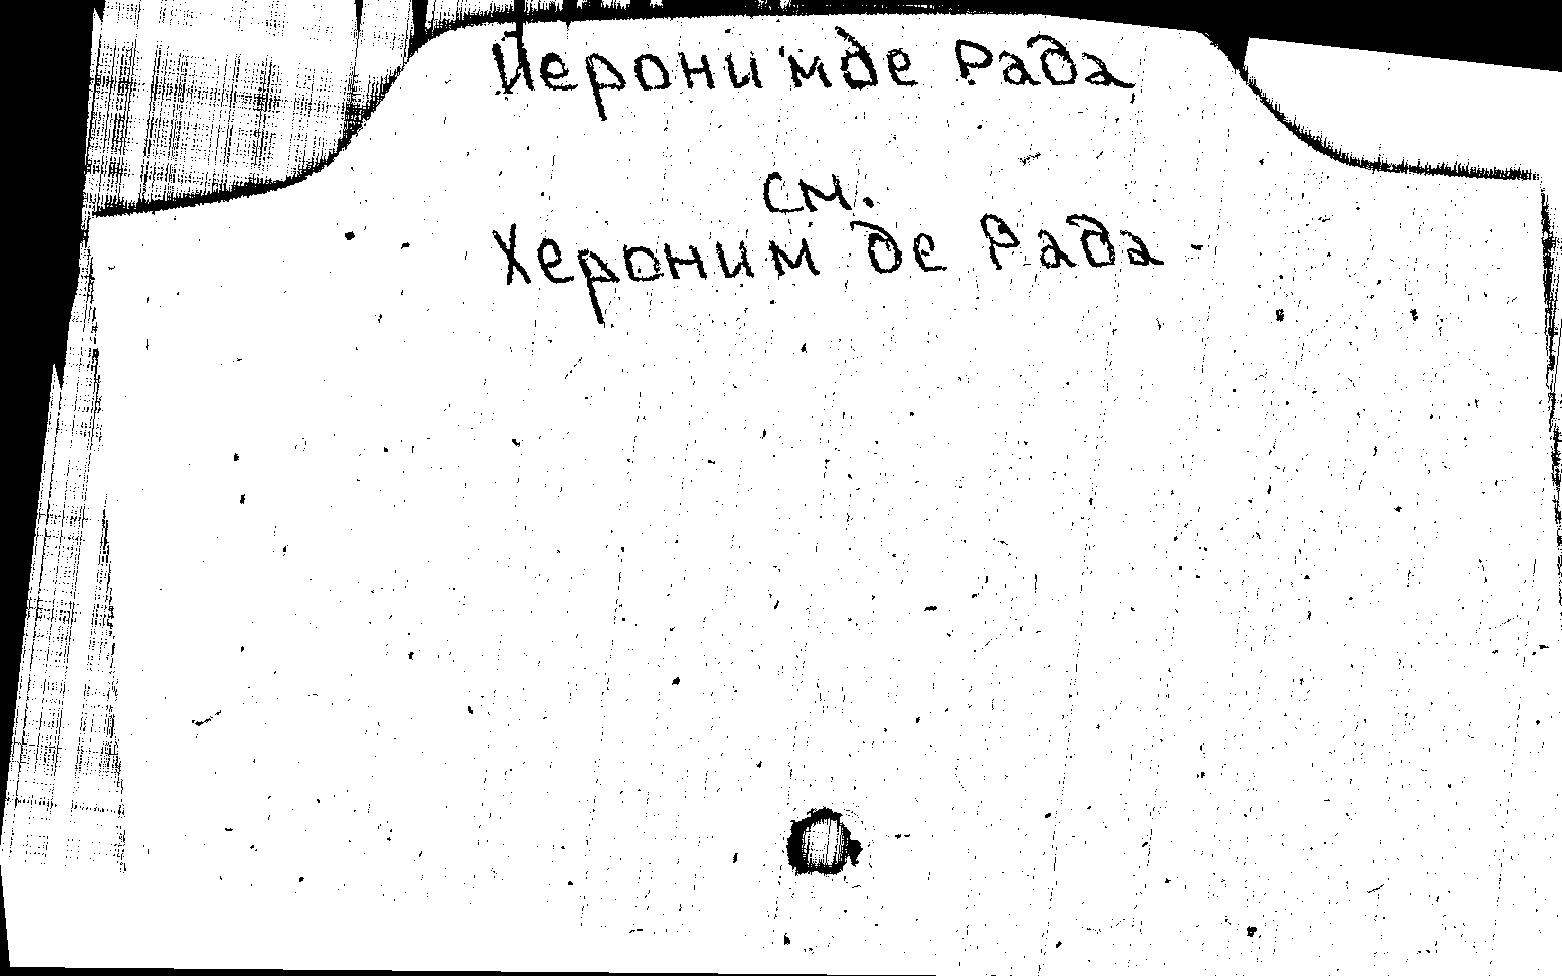 Иеронимде Рада
см.
Хероним де Рада